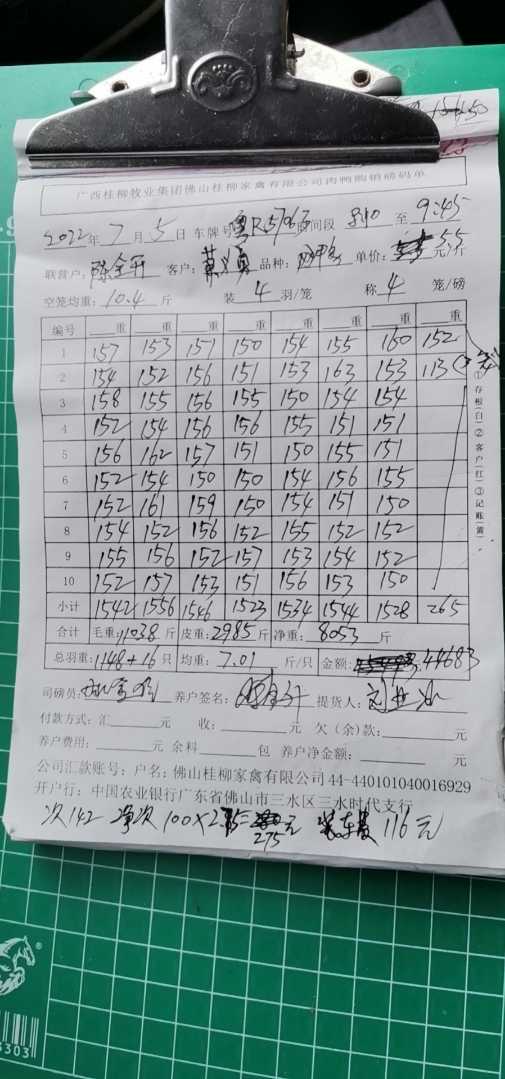 广西桂柳牧业集团佛山桂柳家禽有限公司肉鸭购销磅码单
2022年 7 月 5 日 车牌号 粤R 时间段 至 9:45
联营户: 客户: 品种: 单价: 5.5 元/斤
空笼均重: 10.4 斤 装 4 羽/笼 称 4 笼/磅
编号 重 重 重 重 重 重 重 重
1 157 153 151 150 154 155 160 152
2 154 152 156 151 153 163 153 113
3 158 155 156 155 150 154 154
4 152 154 156 156 155 151 151
5 156 162 157 151 150 155 151
6 152 154 150 150 154 156 155
7 152 161 159 150 154 151 150
8 154 152 156 152 155 152 152
9 155 156 152 157 153 154 152
10 152 157 153 151 156 153 150
小计 1542 1556 1546 1523 1534 1544 1528 265
合计 毛重: 11038 斤 皮重: 2985 斤 净重: 8053 斤
总羽重: 1148+16 只 均重: 7.01 斤/只 金额: 44683
司磅员: 养户签名: 提货人:
付款方式:汇 元 收: 元 欠(余)款: 元
养户费用: 元 余料 包 养户净金额: 元
公司汇款账号:户名:佛山桂柳家禽有限公司 44-440101040016929
开户行:中国农业银行广东省佛山市三水区三水时代支行
次142 净次 100×2 275 元 装车费 116元
①存根(白)②客户(红)③记账(黄)
3303